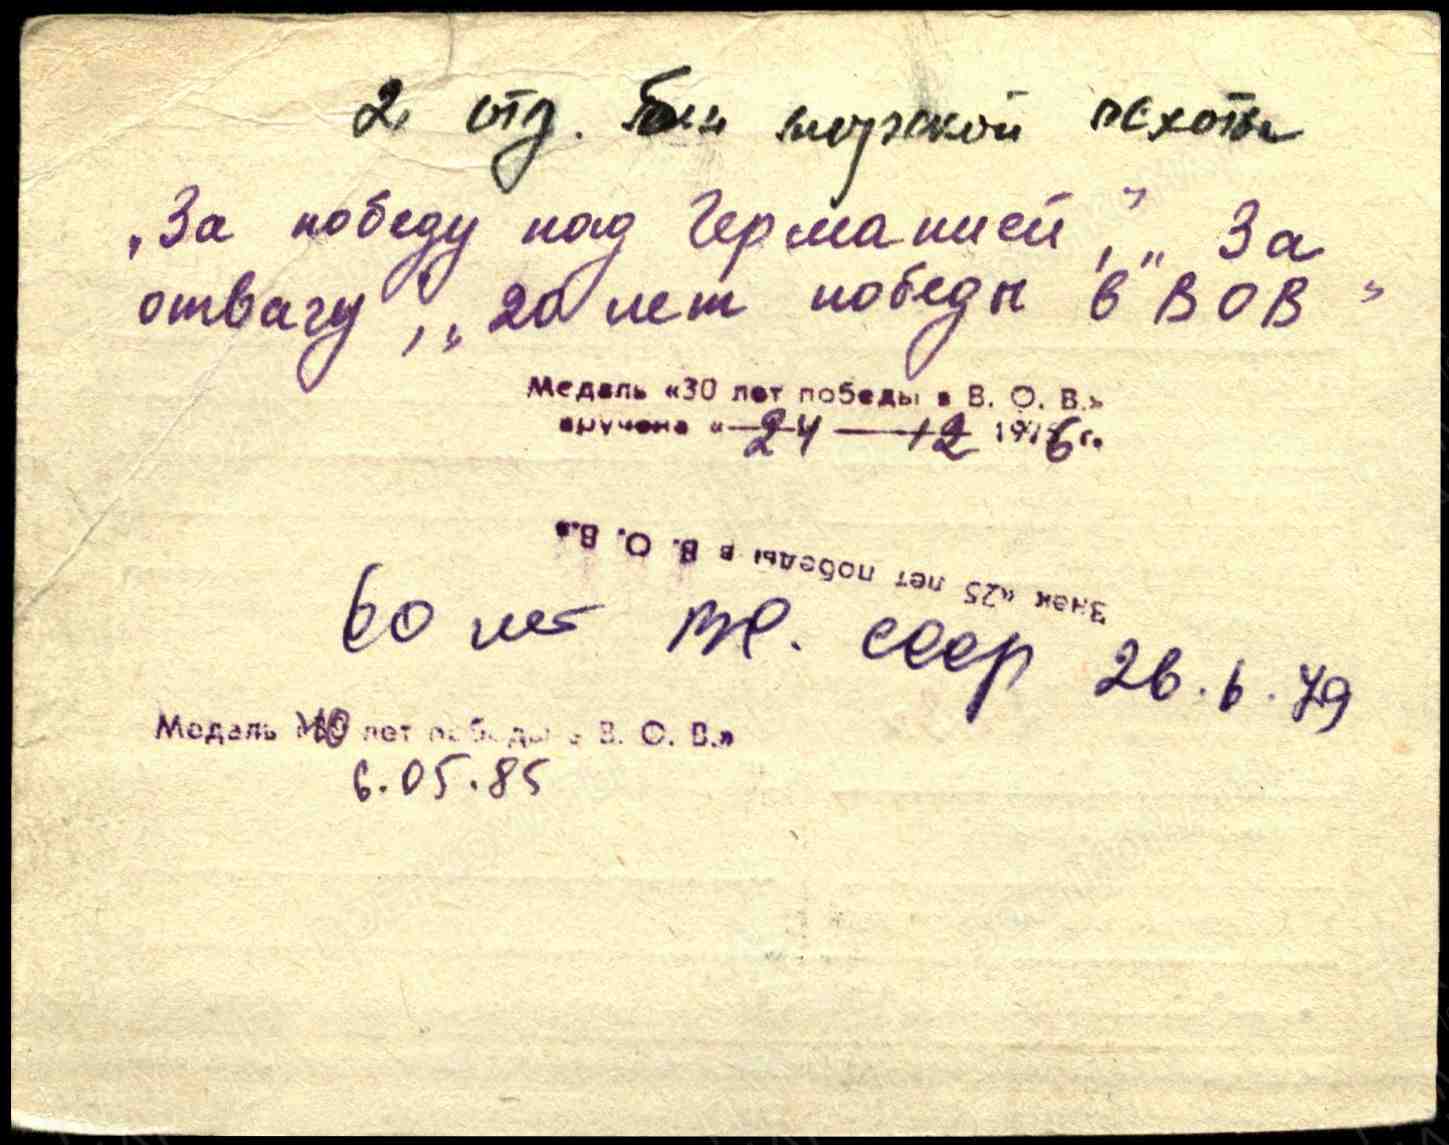 2 отд. б-н морской пехоты
„За победу над Германией”, „За
отвагу”, „20 лет победы в ВОВ”
Медаль «30 лет победы в В. О. В.»
вручена «24 12 1976 г.
Знак «25 лет победы в В. О. В.»
60 лет ВС. СССР 26.6.79
Медаль «40 лет победы в В. О. В.»
6.05.85